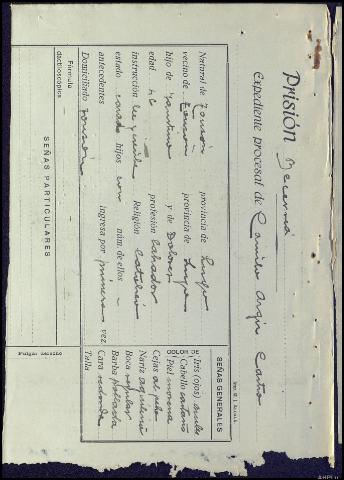 Prisión Becerreá
Expediente procesal de Camilo Castro
Imp. R. L.
Natural de Touson provincia de Lugo
vecino de Touson provincia de Lugo
hijo de y de Dolores
edad 42 profesión labrador
instrucción lee y escribe Religión Católico
estado casado hijos con núm. de ellos –
antecedentes ingresa por primera vez
Domiciliado Touson
SEÑAS GENERALES
Iris (ojos) azules
Cabello castaño
Piel morena
Cejas al pelo
Nariz aguileña
Boca regular
Barba poblada
Cara redonda
Talla
Fórmula dactiloscópica
SEÑAS PARTICULARES
Pulgar derecho
AHPLu